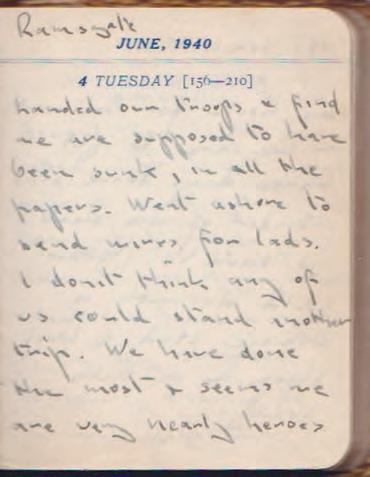 Ramsgate
JUNE, 1940
4 TUESDAY [156—210]
handed our troops & find
we are supposed to have
been sunk, in all the
papers. Went ashore to
send wires for lads.
I don't think any of
us could stand another
trip. We have done
the most & seems we
are very nearly heroes